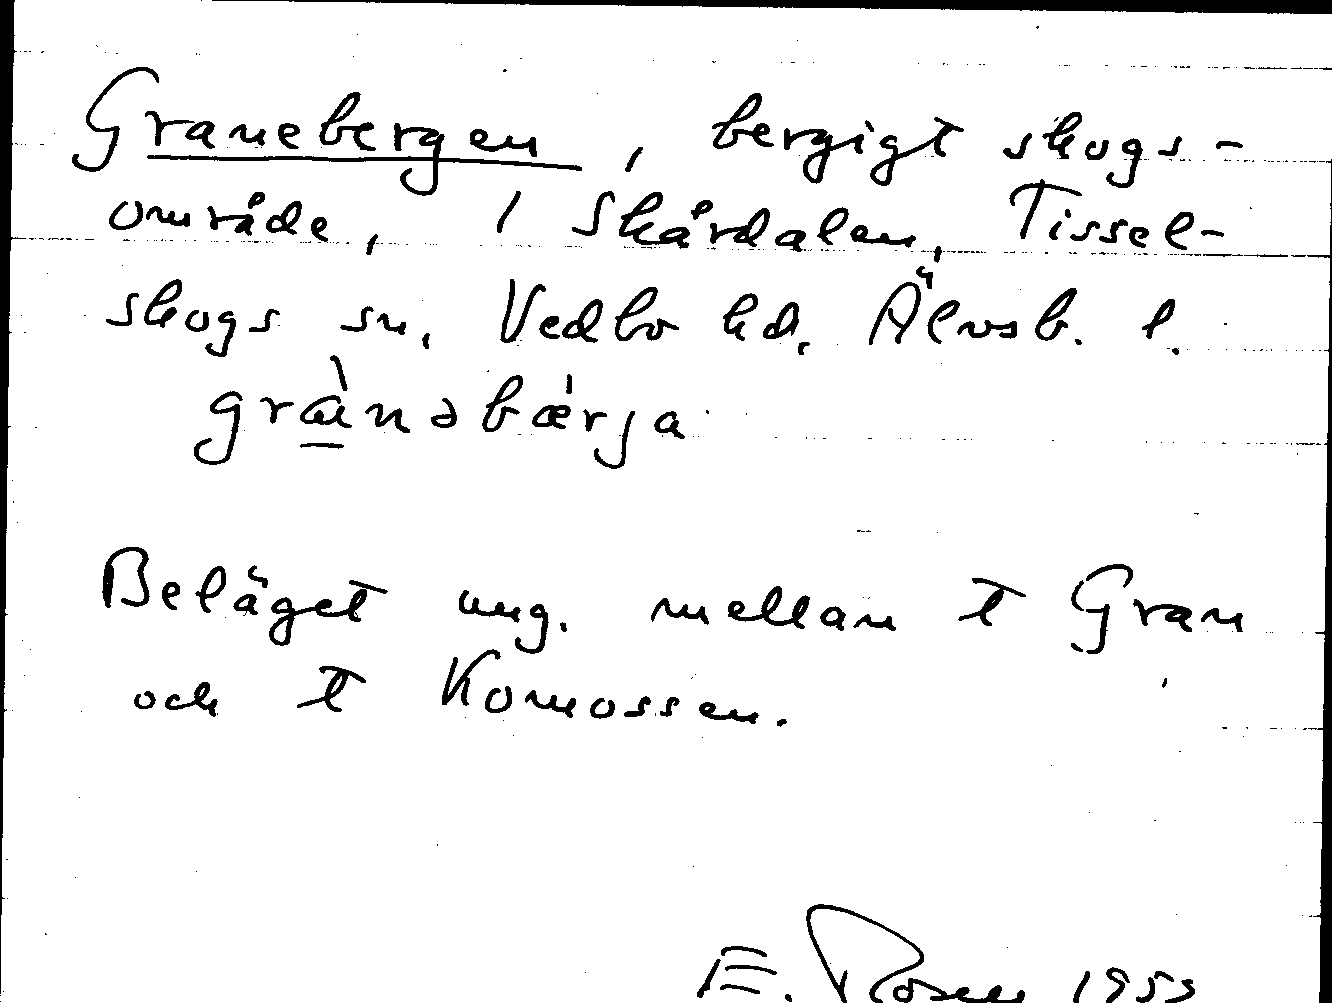 Granebergen, bergigt skogs-
område, 1 Skårdalen, Tissel-
skogs sn, Vedbo hd, Älvsb. l.
grà̱nəbǽrja
Beläget ung. mellan t Gran
och t Komossen.
E. Rosen 1953